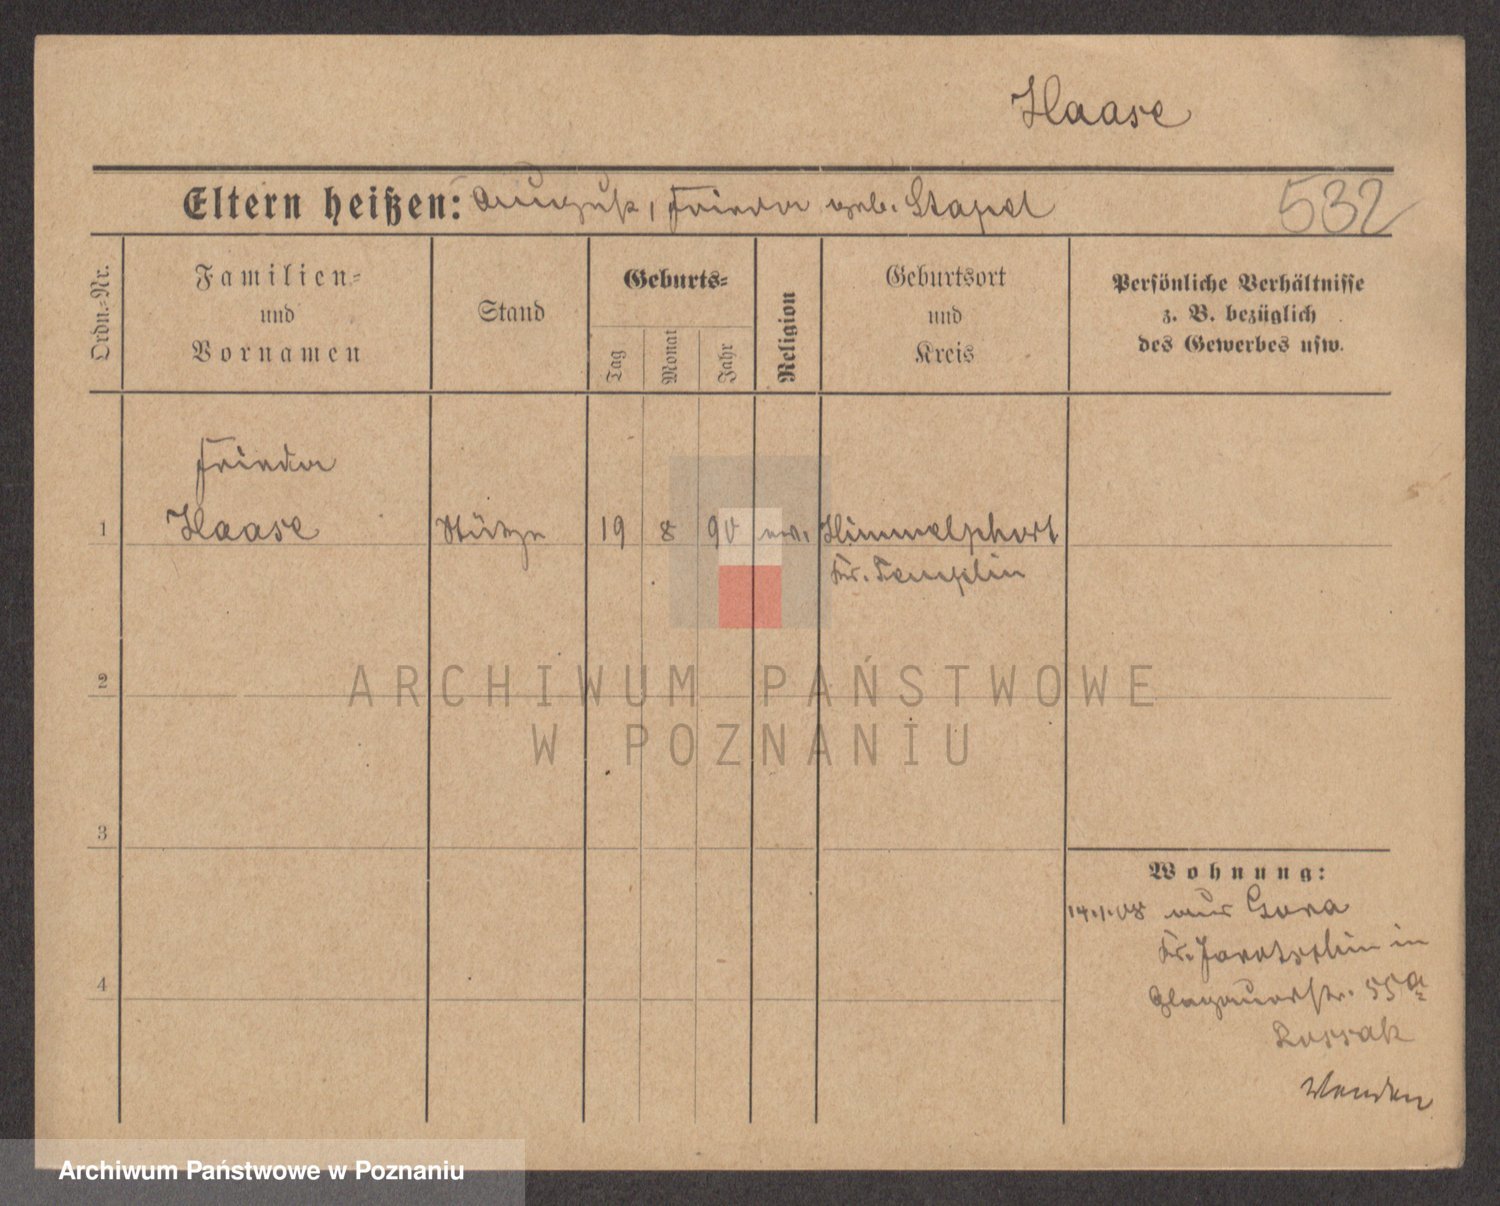 Haase
Eltern heißen: August, Frieda geb. Stapel
532
Ordn.=Nr.
Familien=
und
Vornamen
Stand
Geburts=
Tag
Monat
Jahr
Religion
Geburtsort
und
Kreis
Persönliche Verhältnisse
z. B. bezüglich
des Gewerbes usw.
Frieda
1 Haase Stütze 19 8 90 ev. Himmelphort
Kr. Templin
2
ARCHIWUM PAŃSTWOWE
W POZNANIU
3
Wohnung:
14.1.08 aus Gora
Kr. Jarotschin in
4
Glogauerstr. 55a
Kossak
wenden
Archiwum Państwowe w Poznaniu